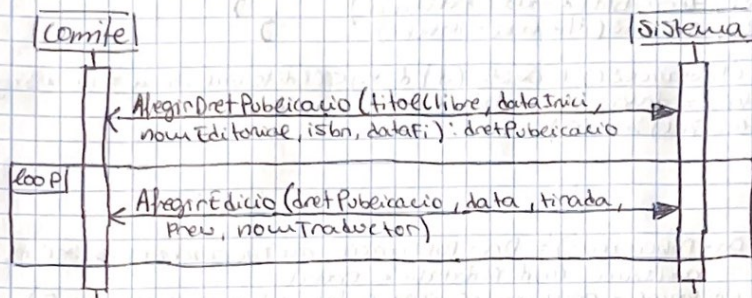 Comite
Sistema
AfegirDretPublicacio (titolLlibre, dataInici,
nomEditorial, isbn, dataFi) : dretPublicacio
loop
AfegirEdicio (dretPublicacio, data, tirada,
Preu, nomTraductor)